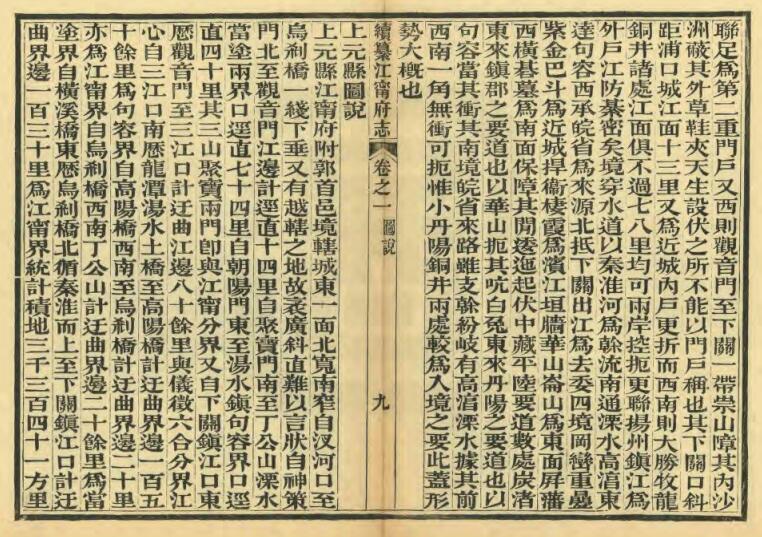 聯足爲第二重門戶又西則觀音門至下關一帶崇山障其內沙
洲蔽其外草鞋夾天生設伏之所不能以門戶稱也其下關口斜
距浦口城江面十三里又爲近城內戶更折而西南則大勝牧龍
銅井諸處江面俱不過七八里均可兩岸控扼更聯揚州鎮江爲
外戶江防綦密矣境穿水道以秦淮河爲幹流南通溧水高淳東
達句容西承皖省爲來源北抵下關出江爲去委四境岡巒重疊
紫金巴斗爲近城捍衞棲霞爲濱江垣牆華山崙山爲東面屏藩
西橫碁墓爲南面保障其閒逶迤起伏中藏平陸要道數處炭渚
東來鎮郡之要道也以華山扼其吭白兔東來丹陽之要道也以
句容當其衝其南境皖省來路雖支幹紛岐有高淳溧水據其前
西南一角無衝可扼惟小丹陽銅井兩處較爲入境之要此蓋形
勢大概也
續纂江甯府志
卷之一 圖說
九
上元縣圖說
上元縣江甯府附郭首邑境轄城東一面北寬南窄自汊河口至
烏刹橋一綫下垂又有越轄之地故袤廣斜直難以言狀自神策
門北至觀音門江邊計徑直十四里自聚寶門南至丁公山溧水
當塗兩界口徑直七十四里自朝陽門東至湯水鎮句容界口徑
直四十里其三山聚寶兩門卽與江甯分界又自下關鎮江口東
歷觀音門至三江口計迂曲江邊八十餘里與儀徵六合分界江
心自三江口南歷龍潭湯水土橋至高陽橋計迂曲界邊一百五
十餘里爲句容界自高陽橋西南至烏刹橋計迂曲界邊二十里
亦爲江甯界自烏刹橋西南丁公山計迂曲界邊二十餘里爲當
塗界自橫溪橋東歷烏刹橋北循秦淮而上至下關鎮江口計迂
曲界邊一百三十里爲江甯界統計積地三千三百四十一方里